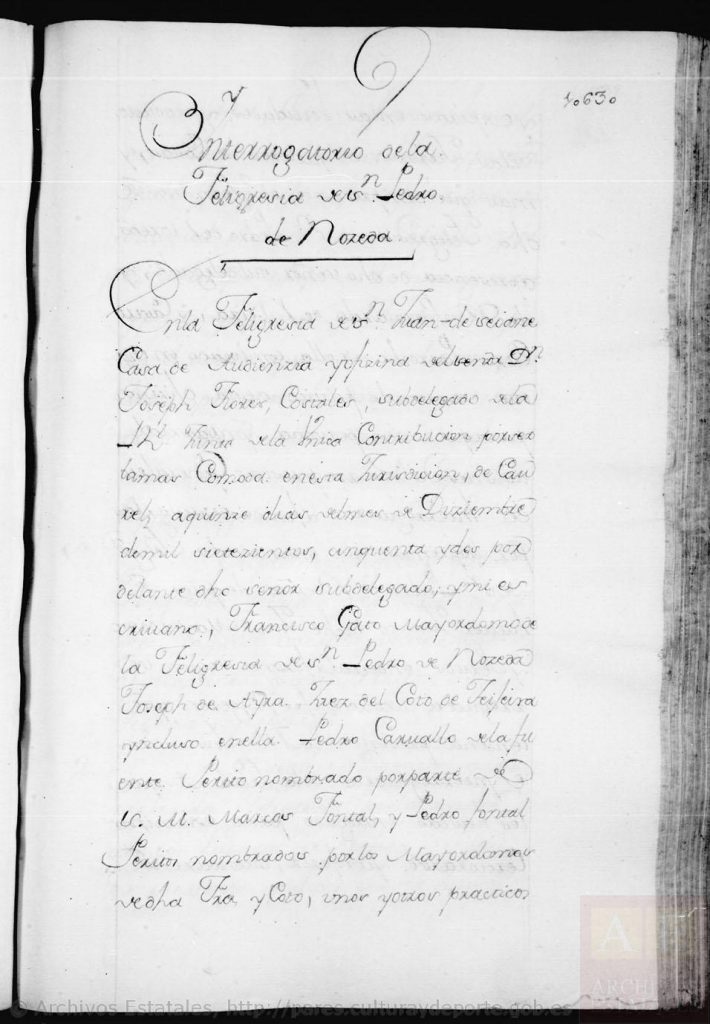 1o63o
Ynterrogatorio de la
Feligresia de Sn. Pedro
de Nozeda
En la Feligresia de Sn. Juan de Seoane
Casa de Audienzia y ofizina del señor Dn.
Joseph Flores, Costales, subdelegado de la
Rl. Junta de la Unica Contribucion por ser
la mas Comoda en esta Jurisdicion, de Cau
rel, a quinze dias del mes de Diziembre
de mil setezientos, cinquenta y dos por
delante dho señor subdelegado, y mi es
crivano, Francisco Gato Mayordomo de
la Feligresia de Sn. Pedro de Nozeda
Joseph de Ayra Juez del Coto de Teijeira
yncluso en ella Pedro Carvallo de la fu
ente Perito nombrado por parte de
S. M. Marcos Fontal, y Pedro fontal
Peritos nombrados por los Mayordomos
de dha Fra. y Coto, unos y otros practicos
© Archivos Estatales, http://pares.culturaydeporte.gob.es